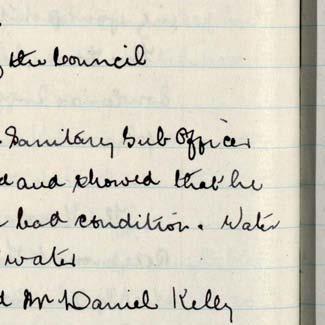 the Council
Sanitary Sub Officer
and showed that he
bad condition. Water
water
Mr Daniel Kelly